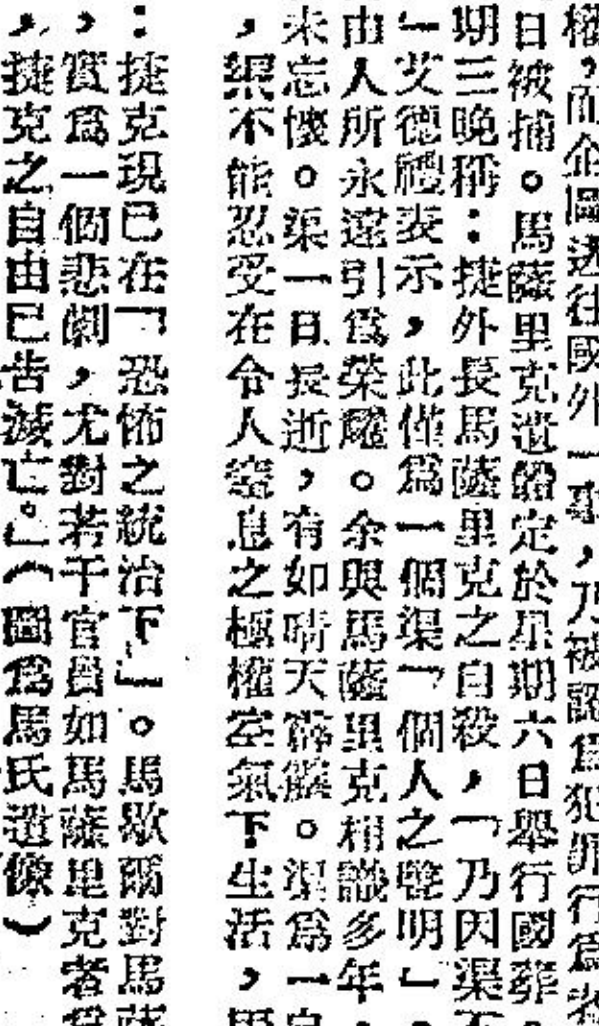 權，而企圖逃往國外一事，乃被認爲犯罪行爲者
日被捕。馬薩里克遺骸定於星期六日舉行國葬。
期三晚稱：捷外長馬薩里克之自殺，「乃因渠不
」艾德禮表示，此僅爲一個渠「個人之聲明」
由人所永遠引爲榮耀。余與馬薩里克相識多年，
未忘懷。渠一旦長逝，有如晴天霹靂。渠爲一自
，絕不能忍受在令人窒息之極權空氣下生活，
：捷克現已在「恐怖之統治下」。馬歇爾對馬薩
，實爲一個悲劇，尤對若干官員如馬薩里克者爲
，捷克之自由已告滅亡。」（圖爲馬氏遺像）